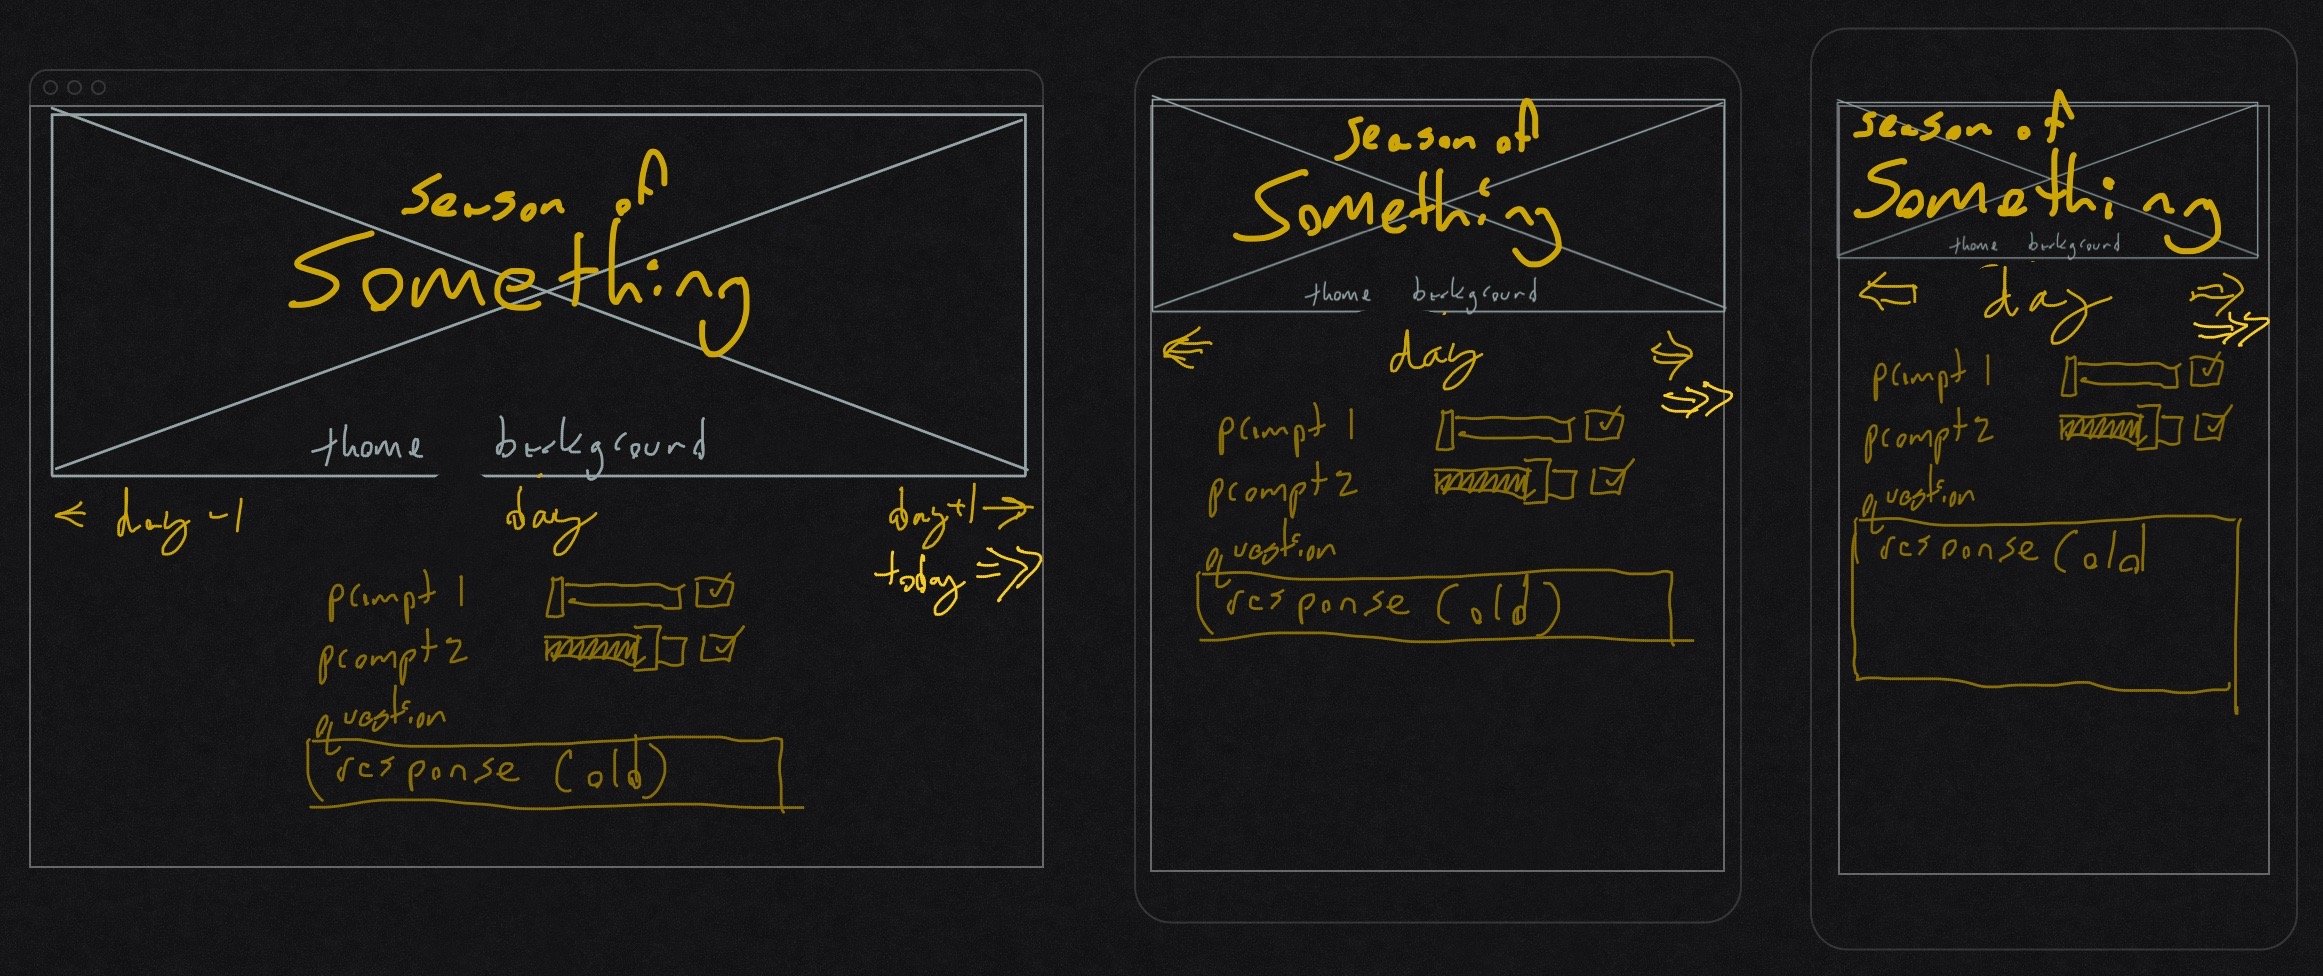 season of
Something
thome background
day -1 day day+1
today
prompt 1
prompt 2
question
response (old)
season of
Something
thome background
day
prompt 1
prompt 2
question
response (old)
season of
Something
thome background
day
prompt 1
prompt 2
question
response (old